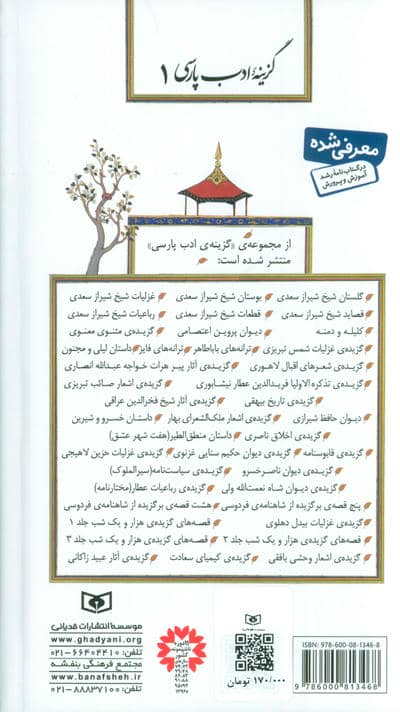 گزینهٔ ادب پارسی ۱
معرفی شده
در کتاب نامهٔ رشد
آموزش و پرورش
از مجموعه‌ی «گزینه‌ی ادب پارسی»
منتشر شده است:
گلستان شیخ شیراز سعدی بوستان شیخ شیراز سعدی غزلیات شیخ شیراز سعدی
قصاید شیخ شیراز سعدی قطعات شیخ شیراز سعدی رباعیات شیخ شیراز سعدی
کلیله و دمنه دیوان پروین اعتصامی گزیده‌ی مثنوی معنوی
گزیده‌ی غزلیات شمس تبریزی ترانه‌های باباطاهر ترانه‌های فایز داستان لیلی و مجنون
گزیده‌ی شعرهای اقبال لاهوری گزیده‌ی آثار پیر هرات خواجه عبدالله انصاری
گزیده‌ی تذکره الاولیا فریدالدین عطار نیشابوری گزیده‌ی اشعار صائب تبریزی
گزیده‌ی تاریخ بیهقی گزیده‌ی آثار شیخ فخرالدین عراقی
دیوان حافظ شیرازی گزیده‌ی اشعار ملک‌الشعرای بهار داستان خسرو و شیرین
گزیده‌ی اخلاق ناصری داستان منطق‌الطیر(هفت شهر عشق)
گزیده‌ی قابوسنامه گزیده‌ی دیوان حکیم سنایی غزنوی گزیده‌ی غزلیات حزین لاهیجی
گزیده‌ی دیوان ناصرخسرو گزیده‌ی سیاست‌نامه(سیرالملوک)
گزیده‌ی دیوان شاه نعمت‌الله ولی گزیده‌ی رباعیات عطار(مختارنامه)
پنج قصه‌ی برگزیده از شاهنامه‌ی فردوسی هشت قصه‌ی برگزیده از شاهنامه‌ی فردوسی
گزیده‌ی غزلیات بیدل دهلوی قصه‌های گزیده‌ی هزار و یک شب جلد ۱
قصه‌های گزیده‌ی هزار و یک شب جلد ۲ قصه‌های گزیده‌ی هزار و یک شب جلد ۳
گزیده‌ی اشعار وحشی بافقی گزیده‌ی کیمیای سعادت گزیده‌ی آثار عبید زاکانی
موسسه انتشارات قدیانی
www.ghadyani.org
تلفن: ۶۶۴۰۴۴۱۰-۰۲۱
مجتمع فرهنگی بنفشه
www.banafsheh.ir
تلفن: ۸۸۸۳۷۱۰۰-۰۲۱
۱۷۰/۰۰۰ تومان
ISBN: 978-600-08-1346-8
9 786000 813468